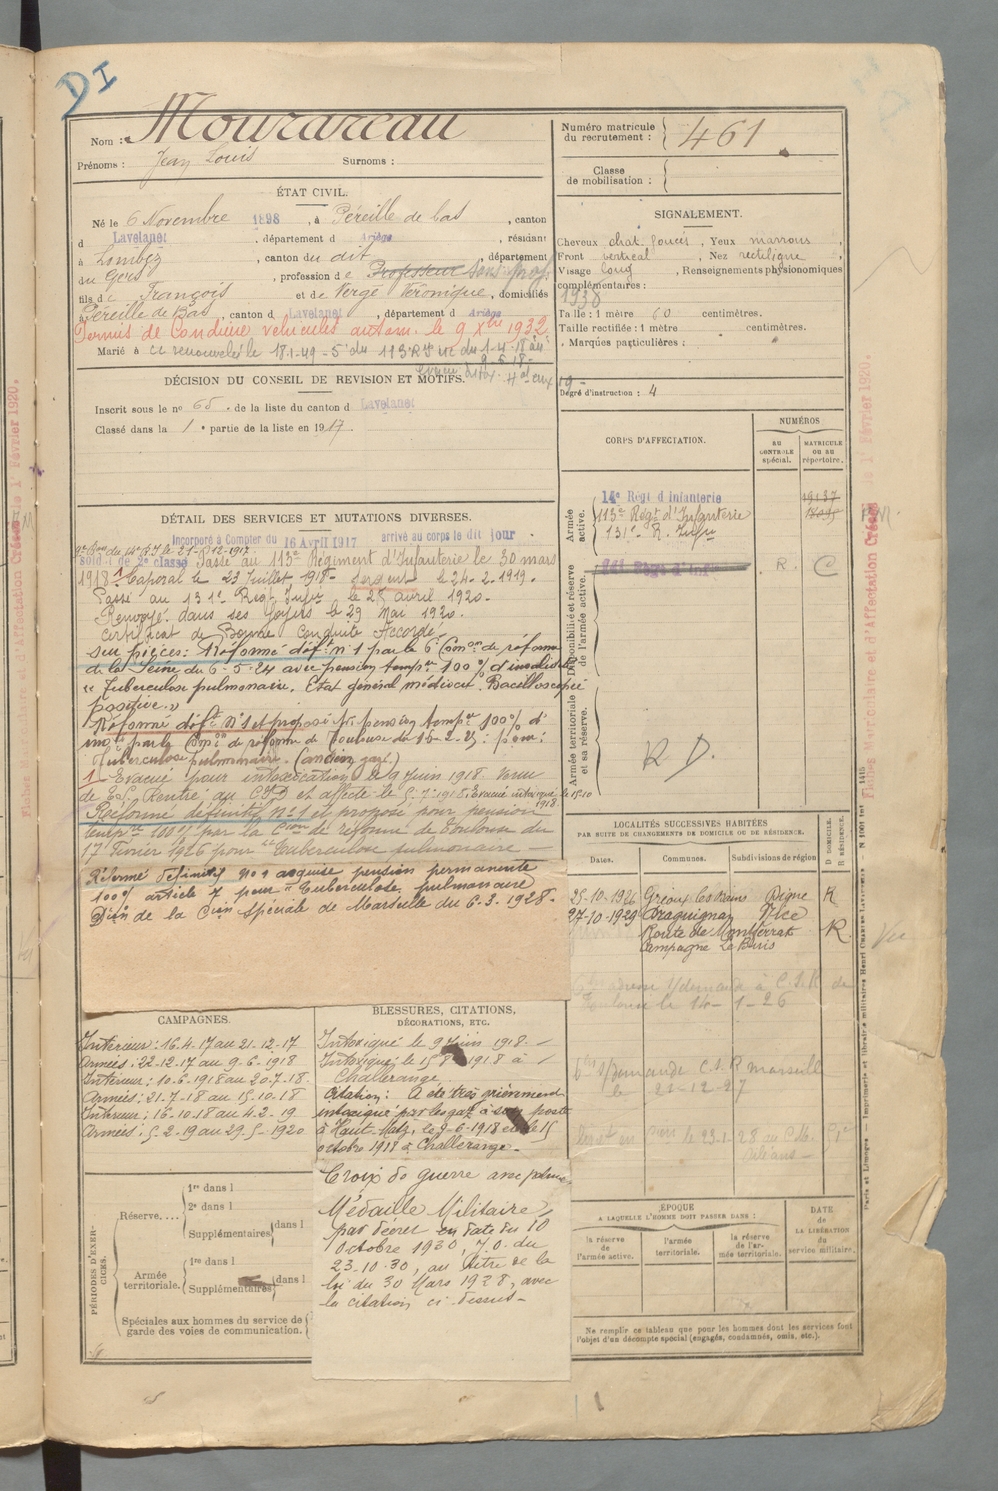 DI
Nom : Mourareau
Prénoms : Jean Louis Surnoms :
Numéro matricule du recrutement : 461
Classe de mobilisation :
ÉTAT CIVIL.
Né le 6 Novembre 1898, à Péreille de bas, canton
d Lavelanet, département d Ariège, résidant
à Lombez, canton du dit, département
du Gers, profession de Professeur sans prof
fils de François et de Vergé Véronique, domiciliés
à Péreille de Bas, canton d Lavelanet, département d Ariège
Permis de Conduire vehicules autom. le 9 Xbre 1932
Marié à
renouvelé le 18-1-49 - 5e du 113e R.I. du 1-4-18 au
9-6-18
SIGNALEMENT.
Cheveux chat. foncés, Yeux marrons,
Front vertical, Nez rectiligne,
Visage long, Renseignements physionomiques
complémentaires :
1938
Taille : 1 mètre 60 centimètres.
Taille rectifiée : 1 mètre centimètres.
Marques particulières :
Degré d'instruction : 4
DÉCISION DU CONSEIL DE REVISION ET MOTIFS.
Inscrit sous le no 65 de la liste du canton d Lavelanet
Classé dans la 1e partie de la liste en 1917.
CORPS D'AFFECTATION.
NUMÉROS
AU CONTROLE spécial.
MATRICULE OU AU répertoire.
Armée active.
14e Régt d Infanterie
113e Régt d'Infanterie
131e R. Infie
19137
Disponibilité et réserve de l'armée active.
R. C
Armée territoriale et sa réserve.
R D.
DÉTAIL DES SERVICES ET MUTATIONS DIVERSES.
Incorporé à Compter du 16 Avril 1917 arrivé au corps le dit jour
soldat de 2e classe Passé au 113e Régiment d'Infanterie le 30 mars
1918. Caporal le 23 Juillet 1918 - sergent le 24-2-1919.
Passé au 131e Régt Infie le 25 avril 1920.
Renvoyé dans ses foyers le 29 Mai 1920.
Certificat de Bonne Conduite Accordé.
Sur pièces : Réformé déft n° 1 par la 6e Comon de réforme
de la Seine du 6-5-24 avec pension tempre 100 % d'invalidité
"Tuberculose pulmonaire. Etat général médiocre. Bacilloscopie
positive."
Réformé déft N°1 et proposé pr pension tempre 100% d'
par la Comon de réforme de Toulouse du 16-2-25 : pour :
Tuberculose pulmonaire. (ancien gazé)
1 Evacué pour intoxication le 9 juin 1918.
Rentré au et affecté le 5-7-1918. Evacué intoxiqué le 15-10
1918.
Réformé définitif n° 1 et proposé pour pension
tempre 100% par la Cion de réforme de Toulouse du
17 Février 1926 pour "Tuberculose pulmonaire
Réformé définitif n° 1 acquise pension permanente
100% article 7 pour "Tuberculose pulmonaire
Dion de la Cion Spéciale de Marseille du 6.3.1928.
LOCALITÉS SUCCESSIVES HABITÉES
PAR SUITE DE CHANGEMENTS DE DOMICILE OU DE RÉSIDENCE.
D DOMICILE.
R RÉSIDENCE.
Dates. Communes. Subdivisions de région
25-10-1926 Gréoux les Bains Digne R
27-10-1929 Draguignan Nice
Route de Montferrat R.
Campagne Le Buis
adresse s/demande à C.S.R de
Toulouse le 14-1-26
s/demande C.S.R Marseille
le 21-12-27
le 23-1-28
CAMPAGNES.
Intérieur : 16.4.17 au 21-12-17
Armées : 22-12-17 au 9-6-1918
Intérieur : 10-6-1918 au 20-7-18.
Armées : 21-7-18 au 15-10-18
Intérieur : 16-10-18 au 4-2-19.
Armées : 5-2-19 au 29-5-1920
BLESSURES, CITATIONS,
DÉCORATIONS, ETC.
Intoxiqué le 9 juin 1918.
Intoxiqué le 15 8bre 1918 à
Challerange
Citation : A été très grièvement
intoxiqué par les gaz à son poste
à Haut-Matz, le 9-6-1918 et le 15
octobre 1918 à Challerange.
Croix de guerre avec palme
Médaille Militaire
par décret en date du 10
Octobre 1930, J.O. du
23-10-30, au titre de la
loi du 30 Mars 1928, avec
la citation ci-dessus -
PÉRIODES D'EXERCICES.
Réserve.... 1re dans l
2e dans l
Supplémentaires dans l
Armée territoriale. 1re dans l
Supplémentaires dans l
Spéciales aux hommes du service de
garde des voies de communication.
ÉPOQUE
A LAQUELLE L'HOMME DOIT PASSER DANS :
la réserve de l'armée active.
l'armée territoriale.
la réserve de l'armée territoriale.
DATE de LA LIBÉRATION du service militaire.
Ne remplir ce tableau que pour les hommes dont les services font
l'objet d'un décompte spécial (engagés, condamnés, omis, etc.).
Fiches Matriculaire et d'Affectation Créées le 1er Février 1920.
Paris et Limoges. — Imprimerie et librairie militaires Henri Charles-Lavauzelle.